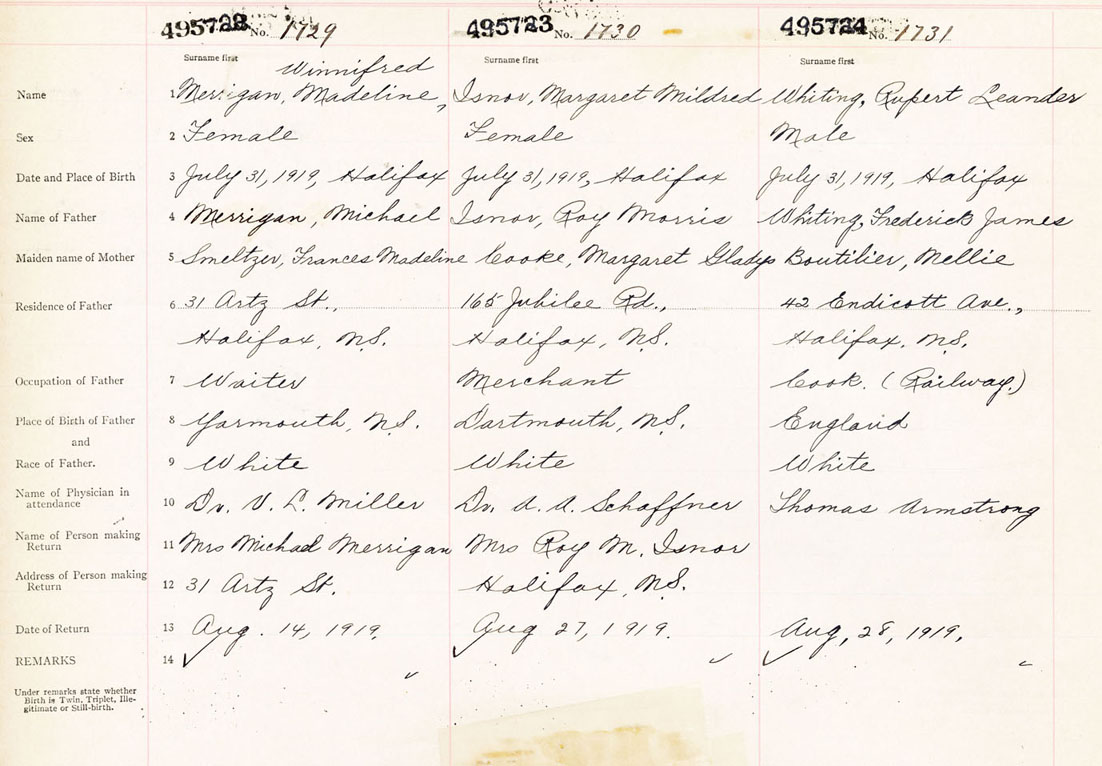 495722 No. 1729 495723 No. 1730 495724 No. 1731
Surname first Surname first Surname first
Winnifred
Name 1 Merrigan, Madeline, Isnor, Margaret Mildred Whiting, Rupert Leander
Sex 2 Female Female Male
Date and Place of Birth 3 July 31, 1919, Halifax July 31, 1919, Halifax July 31, 1919, Halifax
Name of Father 4 Merrigan, Michael Isnor, Roy Morris Whiting, Frederick James
Maiden name of Mother 5 Smeltzer, Frances Madeline Cooke, Margaret Gladys Boutilier, Nellie
Residence of Father 6 31 Artz St., 165 Jubilee Rd., 42 Endicott Ave.,
Halifax, N.S. Halifax, N.S. Halifax, N.S.
Occupation of Father 7 Waiter Merchant Cook. (Railway.)
Place of Birth of Father 8 Yarmouth, N.S. Dartmouth, N.S. England
and
Race of Father. 9 White White White
Name of Physician in
attendance 10 Dr. V. L. Miller Dr. A. A. Schaffner Thomas Armstrong
Name of Person making
Return 11 Mrs Michael Merrigan Mrs Roy M. Isnor
Address of Person making
Return 12 31 Artz St. Halifax, N.S.
Date of Return 13 Aug. 14, 1919. Aug 27, 1919. Aug, 28, 1919.
REMARKS 14
Under remarks state whether
Birth is Twin, Triplet, Ille-
gitimate or Still-birth.